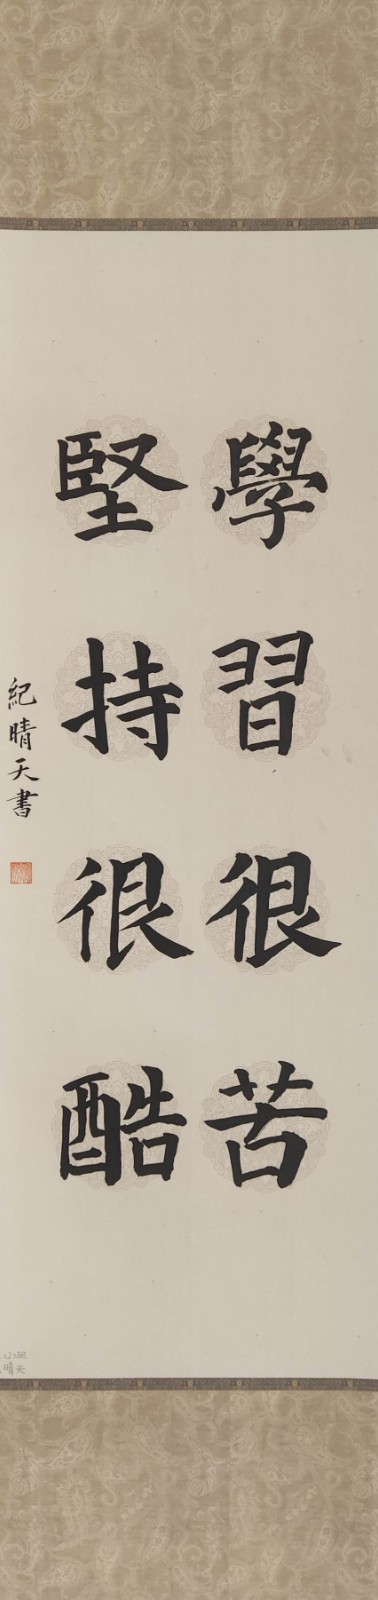 學習很苦
堅持很酷
紀晴天書